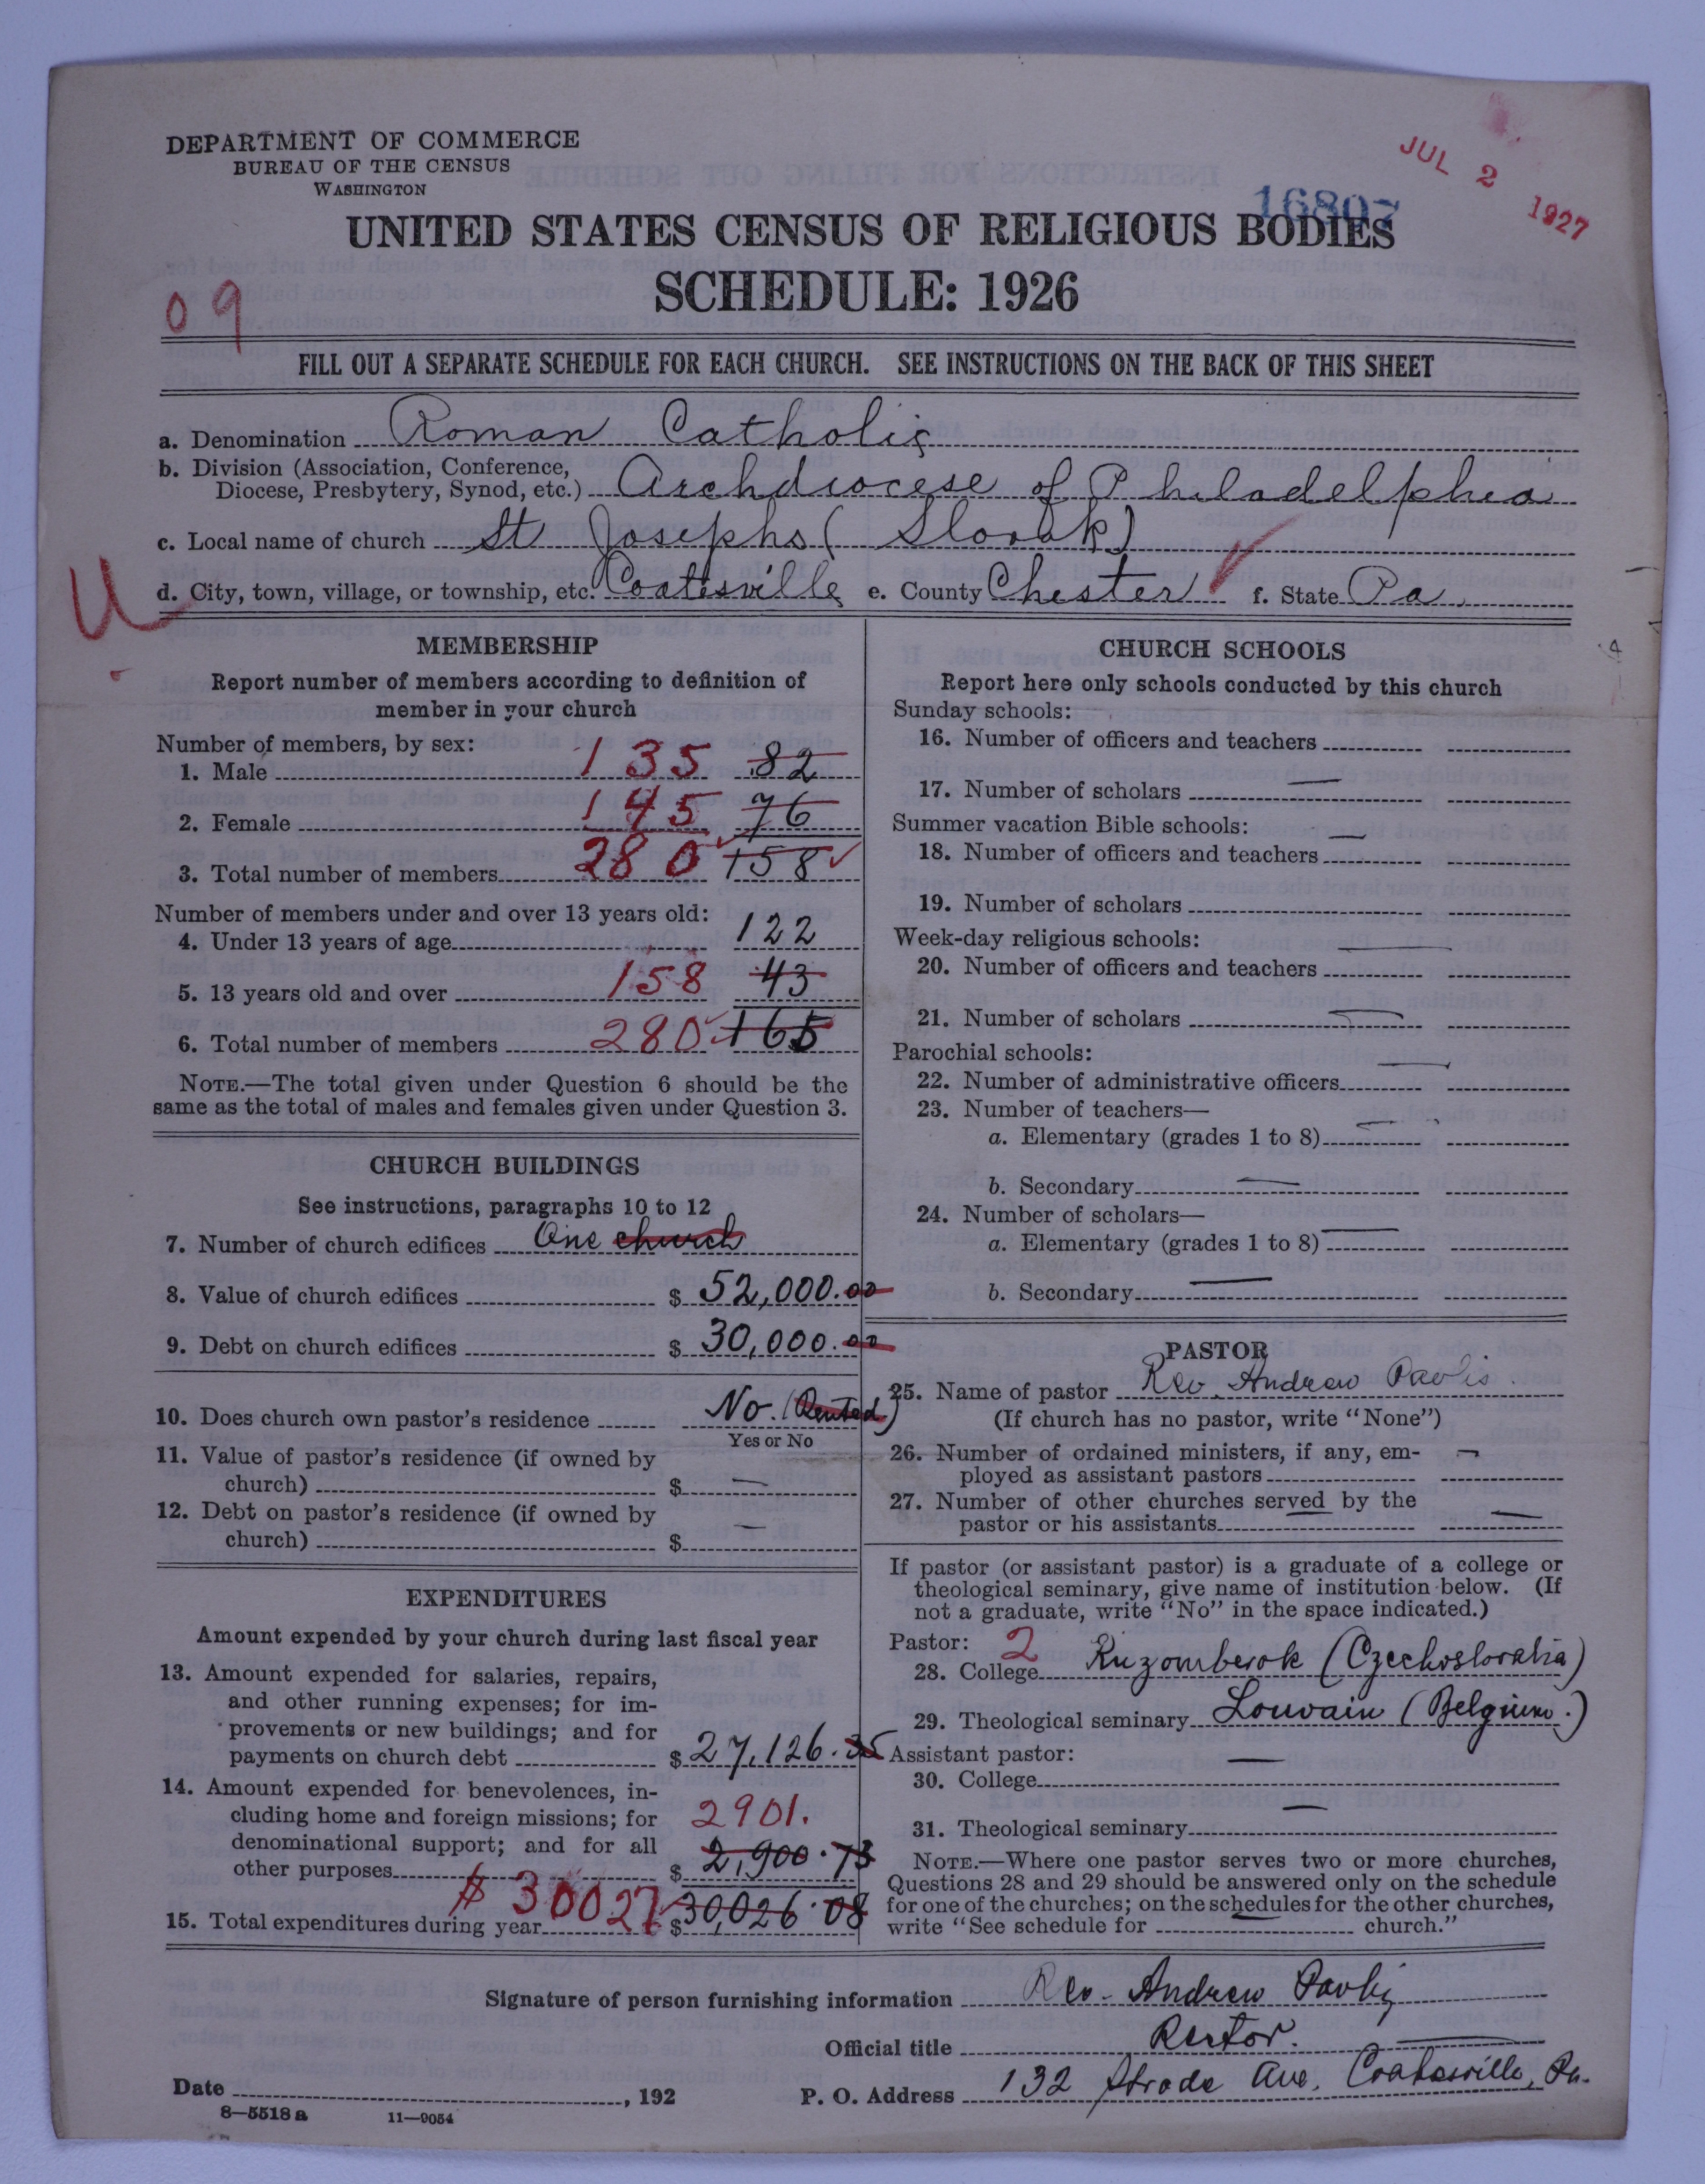 DEPARTMENT OF COMMERCE
BUREAU OF THE CENSUS
WASHINGTON
JUL 2 1927
16807
UNITED STATES CENSUS OF RELIGIOUS BODIES
SCHEDULE: 1926
09
FILL OUT A SEPARATE SCHEDULE FOR EACH CHURCH. SEE INSTRUCTIONS ON THE BACK OF THIS SHEET
a. Denomination Roman Catholic
b. Division (Association, Conference,
Diocese, Presbytery, Synod, etc.) Archdiocese of Philadelphia
c. Local name of church St Josephs (Slovak)
U
d. City, town, village, or township, etc. Coatesville e. County Chester f. State Pa.
MEMBERSHIP
Report number of members according to definition of
member in your church
Number of members, by sex:
1. Male 135 82
2. Female 145 76
3. Total number of members 280 158
Number of members under and over 13 years old:
4. Under 13 years of age 122
5. 13 years old and over 158 43
6. Total number of members 280 165
NOTE.—The total given under Question 6 should be the
same as the total of males and females given under Question 3.
CHURCH BUILDINGS
See instructions, paragraphs 10 to 12
7. Number of church edifices One church
8. Value of church edifices $ 52,000.00
9. Debt on church edifices $ 30,000.00
10. Does church own pastor's residence No. (Rented)
Yes or No
11. Value of pastor's residence (if owned by
church) $ —
12. Debt on pastor's residence (if owned by
church) $ —
EXPENDITURES
Amount expended by your church during last fiscal year
13. Amount expended for salaries, repairs,
and other running expenses; for im-
provements or new buildings; and for
payments on church debt $ 27,126.35
14. Amount expended for benevolences, in-
cluding home and foreign missions; for 2901.
denominational support; and for all
other purposes $ 2,900.73
15. Total expenditures during year $ 30027 $30,026.08
CHURCH SCHOOLS
Report here only schools conducted by this church
Sunday schools:
16. Number of officers and teachers
17. Number of scholars —
Summer vacation Bible schools:
18. Number of officers and teachers —
19. Number of scholars
Week-day religious schools:
20. Number of officers and teachers —
21. Number of scholars —
Parochial schools:
22. Number of administrative officers —
23. Number of teachers—
a. Elementary (grades 1 to 8) —
b. Secondary —
24. Number of scholars—
a. Elementary (grades 1 to 8) —
b. Secondary —
PASTOR
25. Name of pastor Rev. Andrew Pavlis
(If church has no pastor, write "None")
26. Number of ordained ministers, if any, em-
ployed as assistant pastors —
27. Number of other churches served by the
pastor or his assistants — —
If pastor (or assistant pastor) is a graduate of a college or
theological seminary, give name of institution below. (If
not a graduate, write "No" in the space indicated.)
Pastor: 2
28. College Ruzomberok (Czechoslovakia)
29. Theological seminary Louvain (Belgium.)
Assistant pastor:
30. College —
31. Theological seminary —
NOTE.—Where one pastor serves two or more churches,
Questions 28 and 29 should be answered only on the schedule
for one of the churches; on the schedules for the other churches,
write "See schedule for — church."
Signature of person furnishing information Rev. Andrew Pavlis
Official title Rector.
Date , 192 P. O. Address 132 Strode Ave. Coatesville, Pa.
8—5518 a 11—9054